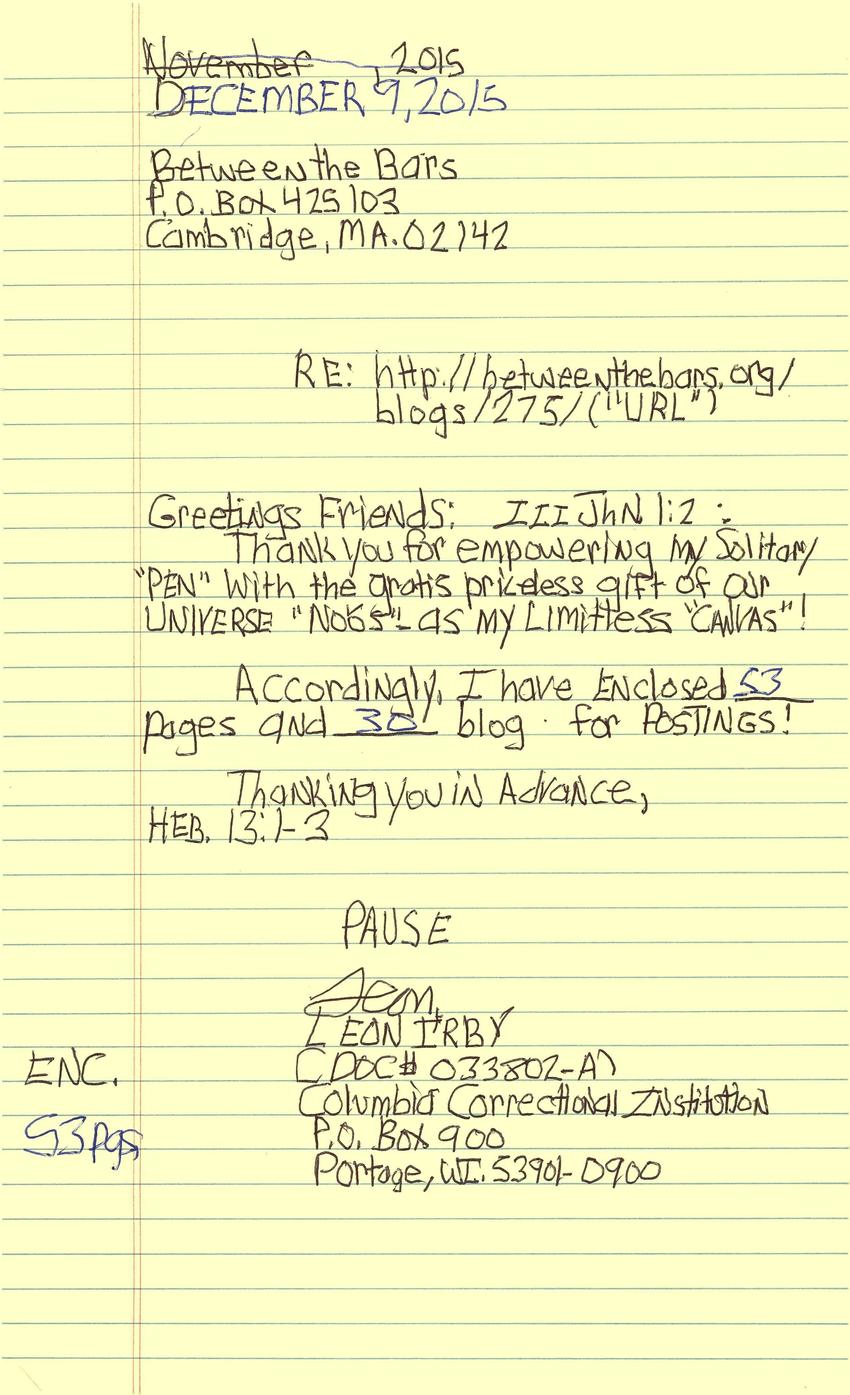 November 2015
DECEMBER 9, 2015
Between the Bars
P.O. Box 425103
Cambridge, MA. 02142
RE: http://betweenthebars.org/
blogs/275/("URL")
Greetings Friends: III JhN 1:2 :
Thank you for empowering my Solitary
"PEN" With the gratis priceless gift of our
UNIVERSE as my Limitless "CANVAS"!
Accordingly, I have ENclosed 53
pages and 30 blog for POSTINGS!
Thanking you in Advance,
HEB. 13:1-3
PAUSE
LEON IRBY
(DOC# 033802-A)
ENC.
Columbia Correctional Institution
53 pgs
P.O. Box 900
Portage, WI. 53901-0900